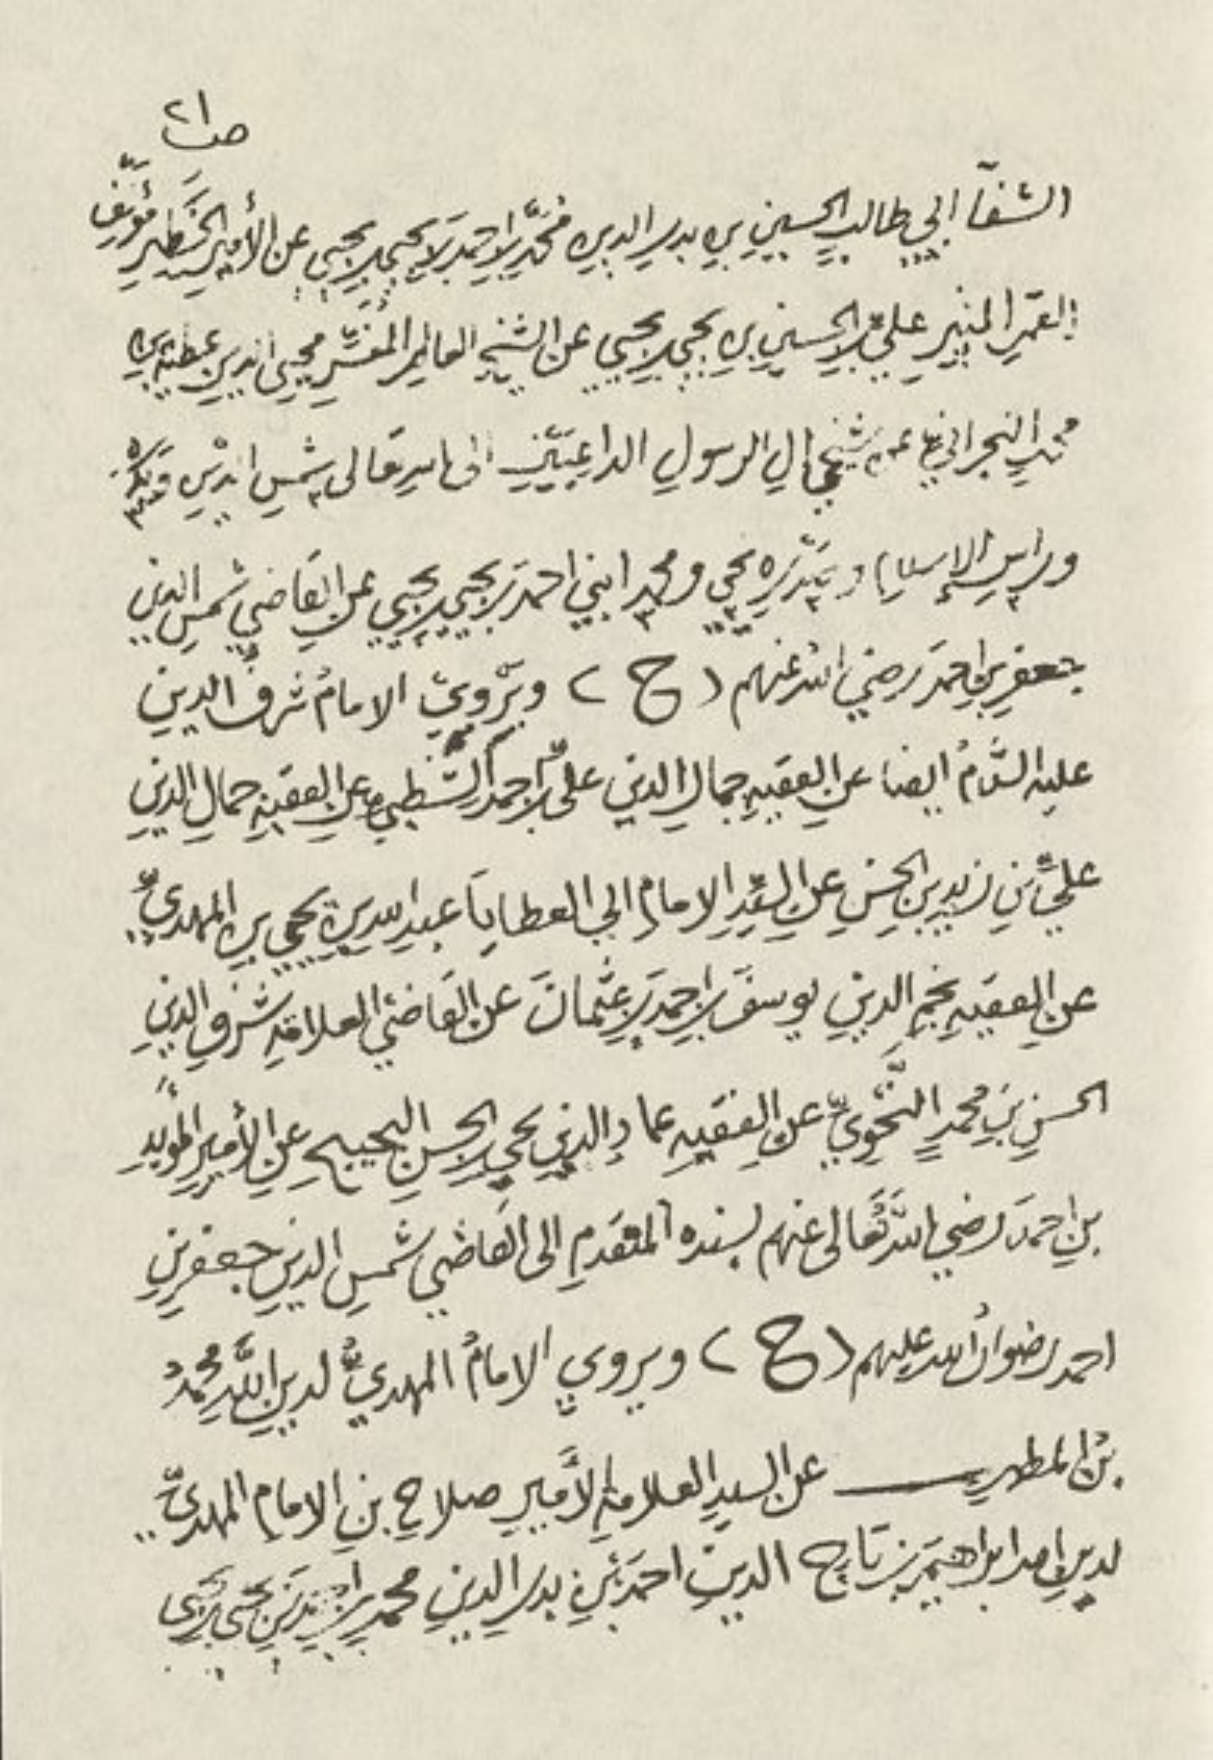 صـ٢١
الشفآ ابي طالب الحسين بن بدر الدين محمد بن احمد بن يحيى بن يحيى عن الأمير الخطير مؤلف
القمر المنير علي بن الحسين بن يحيى بن يحيى عن الشيخ العالم المفسر محيي الدين عطية بن
محمد النجراني عن شيخي ال الرسول الداعيين الى الله تعالى شمس الدين
وراس الإسلام وبدره يحيى ومحمد ابني احمد بن يحيى بن يحيى عن القاضي شمس الدين
جعفر بن احمد رضي الله عنهم ( ح ) ويروي الامام شرف الدين
عليه السلام ايضا عن الفقيه جمال الدين علي بن احمد الشظبي عن الفقيه جمال الدين
علي بن زيد بن الحسن عن السيد الامام ابي العطايا عبدالله بن يحيى بن المهدي
عن الفقيه نجم الدين يوسف بن احمد بن عثمان عن القاضي العلامة شرف الدين
الحسن بن محمد النحوي عن الفقيه عماد الدين يحيى بن الحسن البحيبح عن الأمير المؤيد
بن احمد رضي الله تعالى عنهم بسنده المتقدم الى القاضي شمس الدين جعفر بن
احمد رضوان الله عليهم ( ح ) ويروي الامام المهدي لدين الله محمد
بن المطهر عن السيد العلامة الأمير صلاح بن الامام المهدي
لدين الله ابراهيم بن تاج الدين احمد بن بدر الدين محمد بن احمد بن يحيى بن يحيى